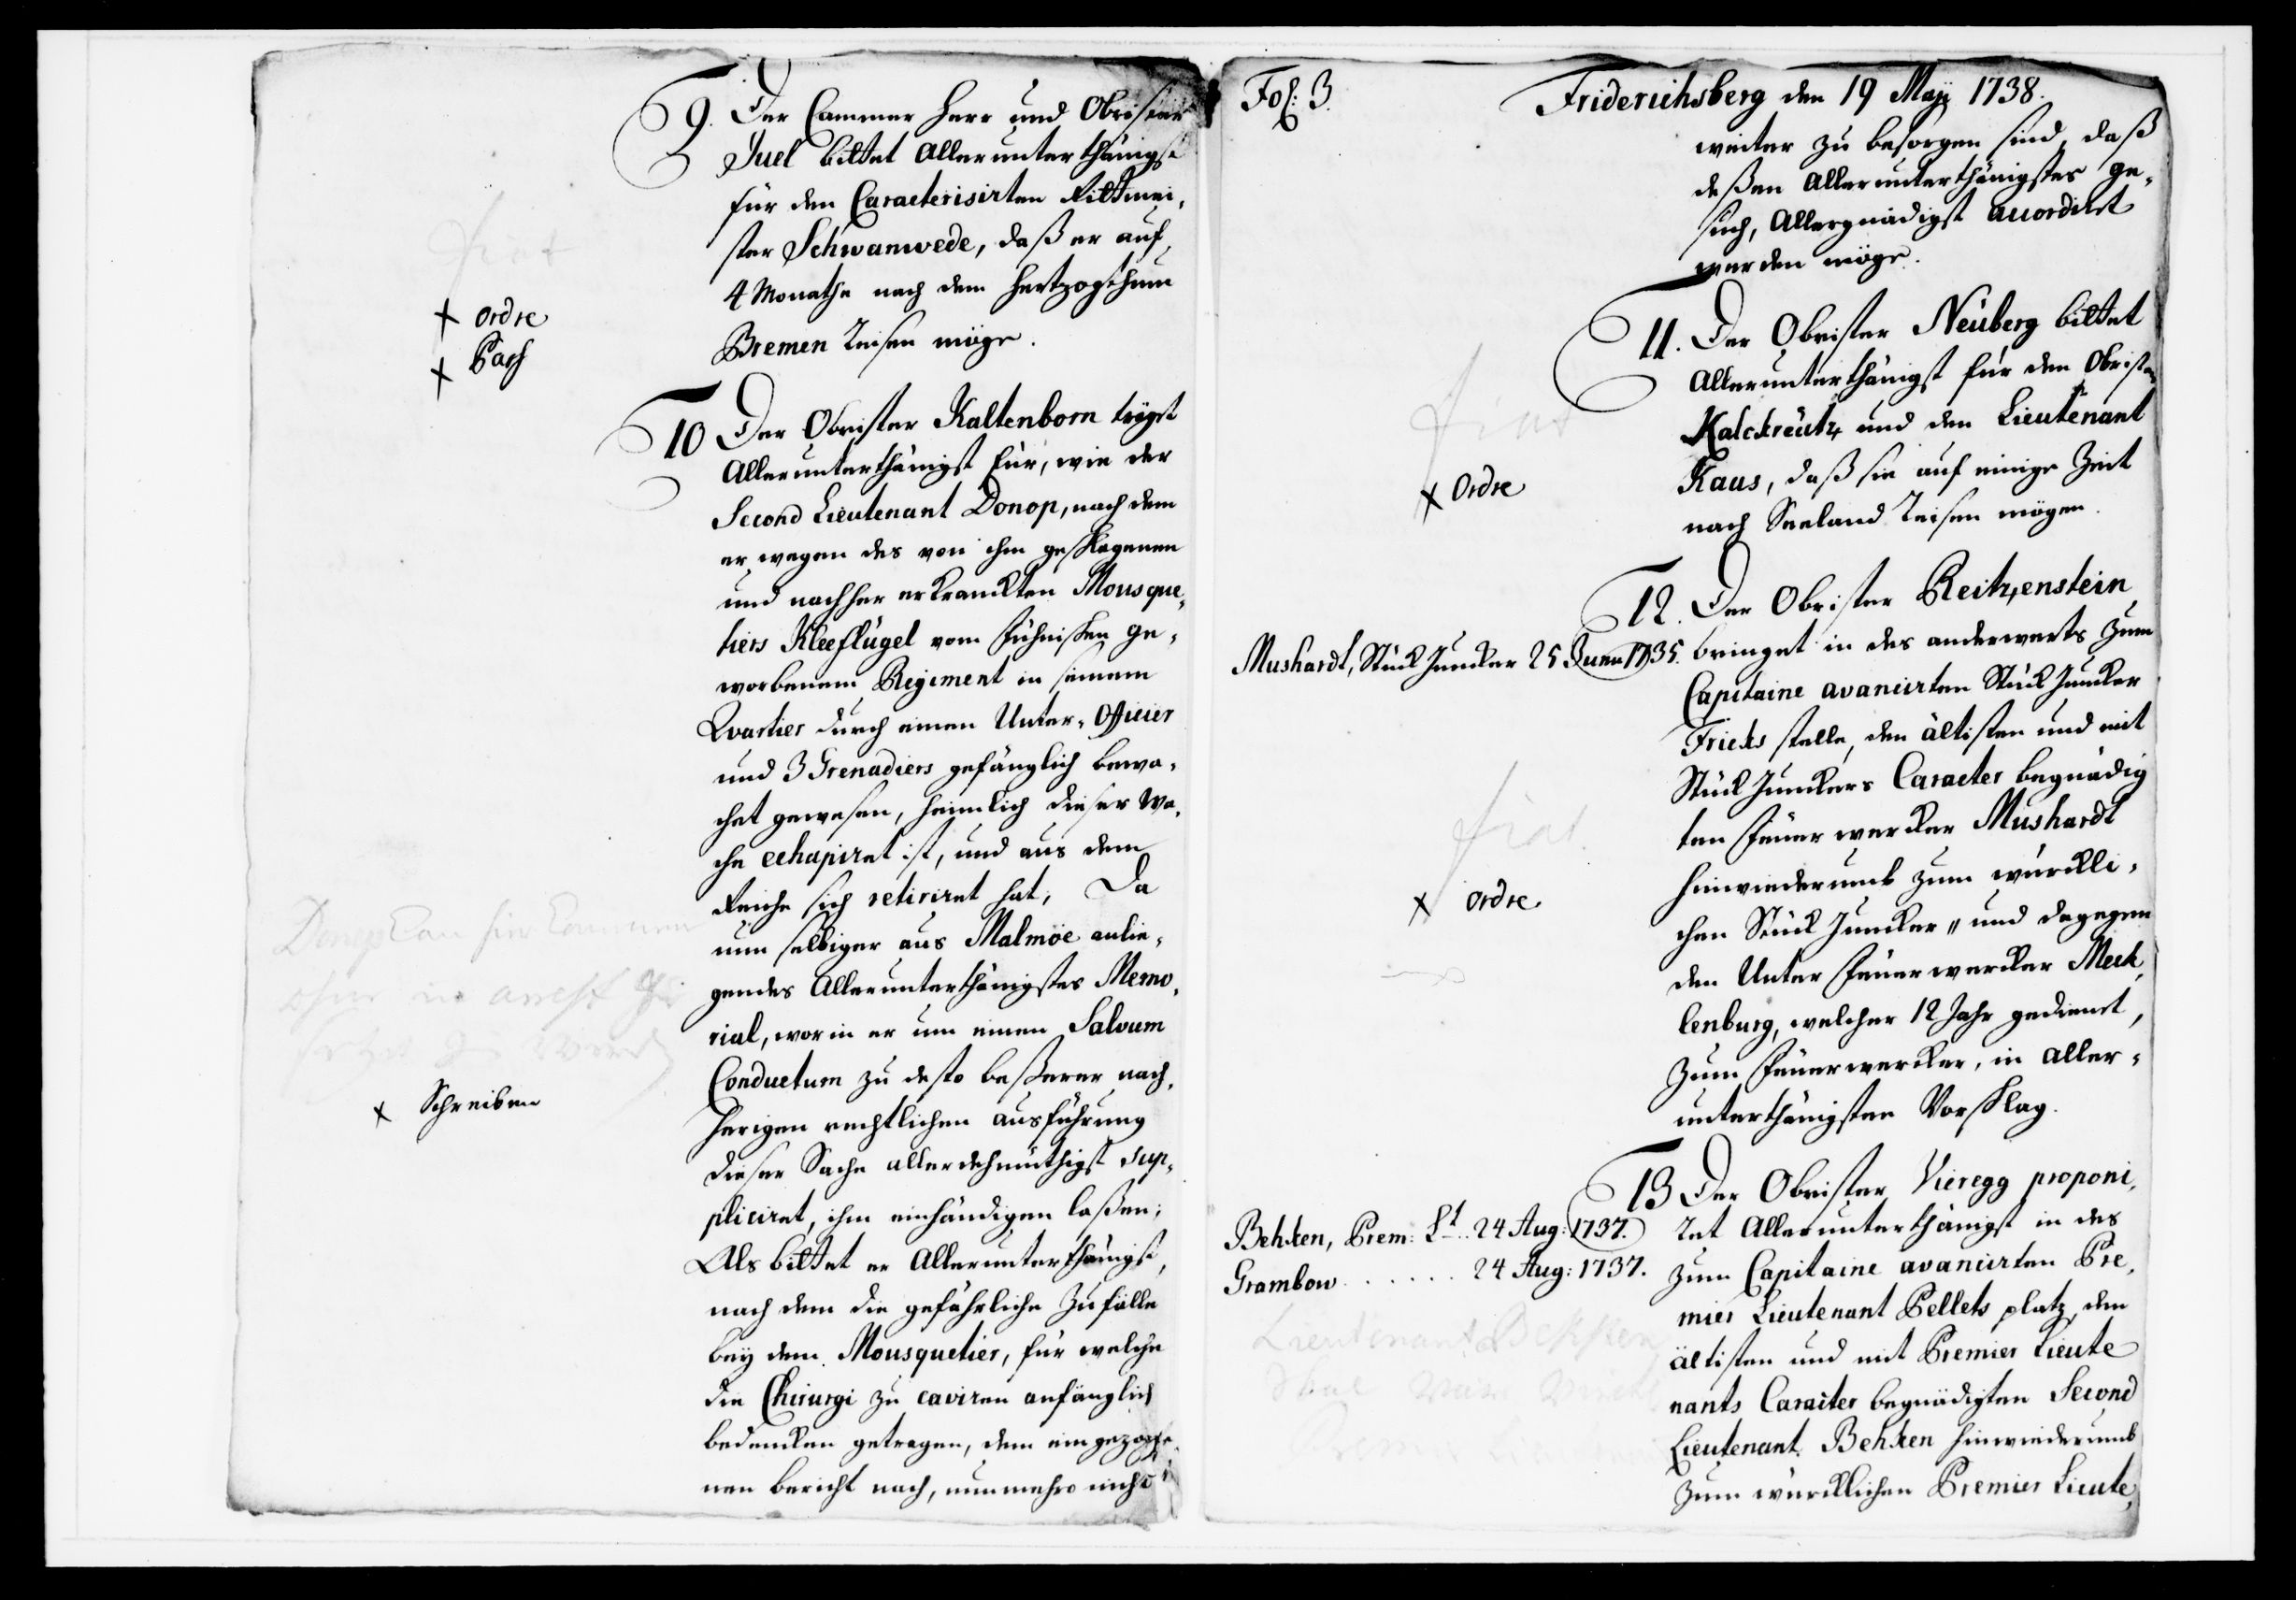 9. Der Cammer Herr und Obrister
Juel bittet Allerunterthänigst
für den Caracterisirten Rittmei,
ster Schwanwede, daß er auf
4 Monathe nach dem Hertzogthum
Bremen reisen möge.
fiat
x ordre
x Pass
10 Der Obrister Kaltenborn trägt
Allerunterthänigst für, wie der
Second Lieutenant Donop, nach dem
er wegen des von ihm geschlagenen
und nachher erkranckten Mousque,
tiers Kleeflügel vom Fühnischen ge,
worbenem Regiment in seinem
Qvartier durch einen Unter-Officier
und 3 Grenadiers gefänglich bewa,
chet gewesen, heimlich dieser Wa,
che echapiret ist, und aus dem
Reiche sich retiriret hat, Da
nun selbiger aus Malmöe anlie,
gendes Allerunterthänigstes Memo,
rial, worin er um einen Salvum
Conductum zu desto beßerer nach,
herigen rechtlichen ausführung
dieser Sache allerdehmüthigst sup,
pliciret, ihm einhändigen laßen;
Als bittet er Allerunterthänigst,
nach dem die gefährliche Zufälle
bey dem Mousquetier, für welche
die Chirurgi zu caviren anfänglich
bedencken getragen, dem eingezoge,
nen bericht nach, nunmehro nicht
Donop kan hier kommen
ohne in arrest
x Schreiben
Fol: 3.
Friderichsberg den 19 Maji 1738.
weiter zu besorgen sind, daß
deßen Allerunterthänigstes ge,
such, Allergnädigst accordirt
werden möge.
11. Der Obrister Neuberg bittet
Allerunterthänigst für den Obristen
Kalckreutz und den Lieutenant
Kaas, daß sie auf einige Zeit
nach Seeland reisen mögen.
fiat
x Ordre
12. Der Obrister Reitzenstein
Mushardt, Stück Juncker 25 Junii 1735.
bringet in des anderwerts zum
Capitaine avancirten Stück Juncker
Fricks stelle, den ältisten und mit
Stück Junckers Caracter begnädig
ten Feuerwercker Mushardt
hinwiederumb zum würckli,
chen Stück Juncker, und dagegen
den Unter Feuerwercker Meck,
lenburg, welcher 12 Jahr gedient,
zum Feuerwercker, in aller,
unterthänigsten Vorschlag.
fiat
x ordre
13 Der Obrister Vieregg proponi,
ret Allerunterthänigst in des
zum Capitaine avancirten Pre,
mier Lieutenant Pellets platz, den
ältisten und mit Premier Lieute
nants Caracter begnädigten Second
Lieutenant Behken hinwiederumb
zum würcklichen Premier Lieute,
Behken, Prem: Lt. 24 Aug: 1737.
Grambow . . . . . . . 24 Aug: 1737.
Lieutenant